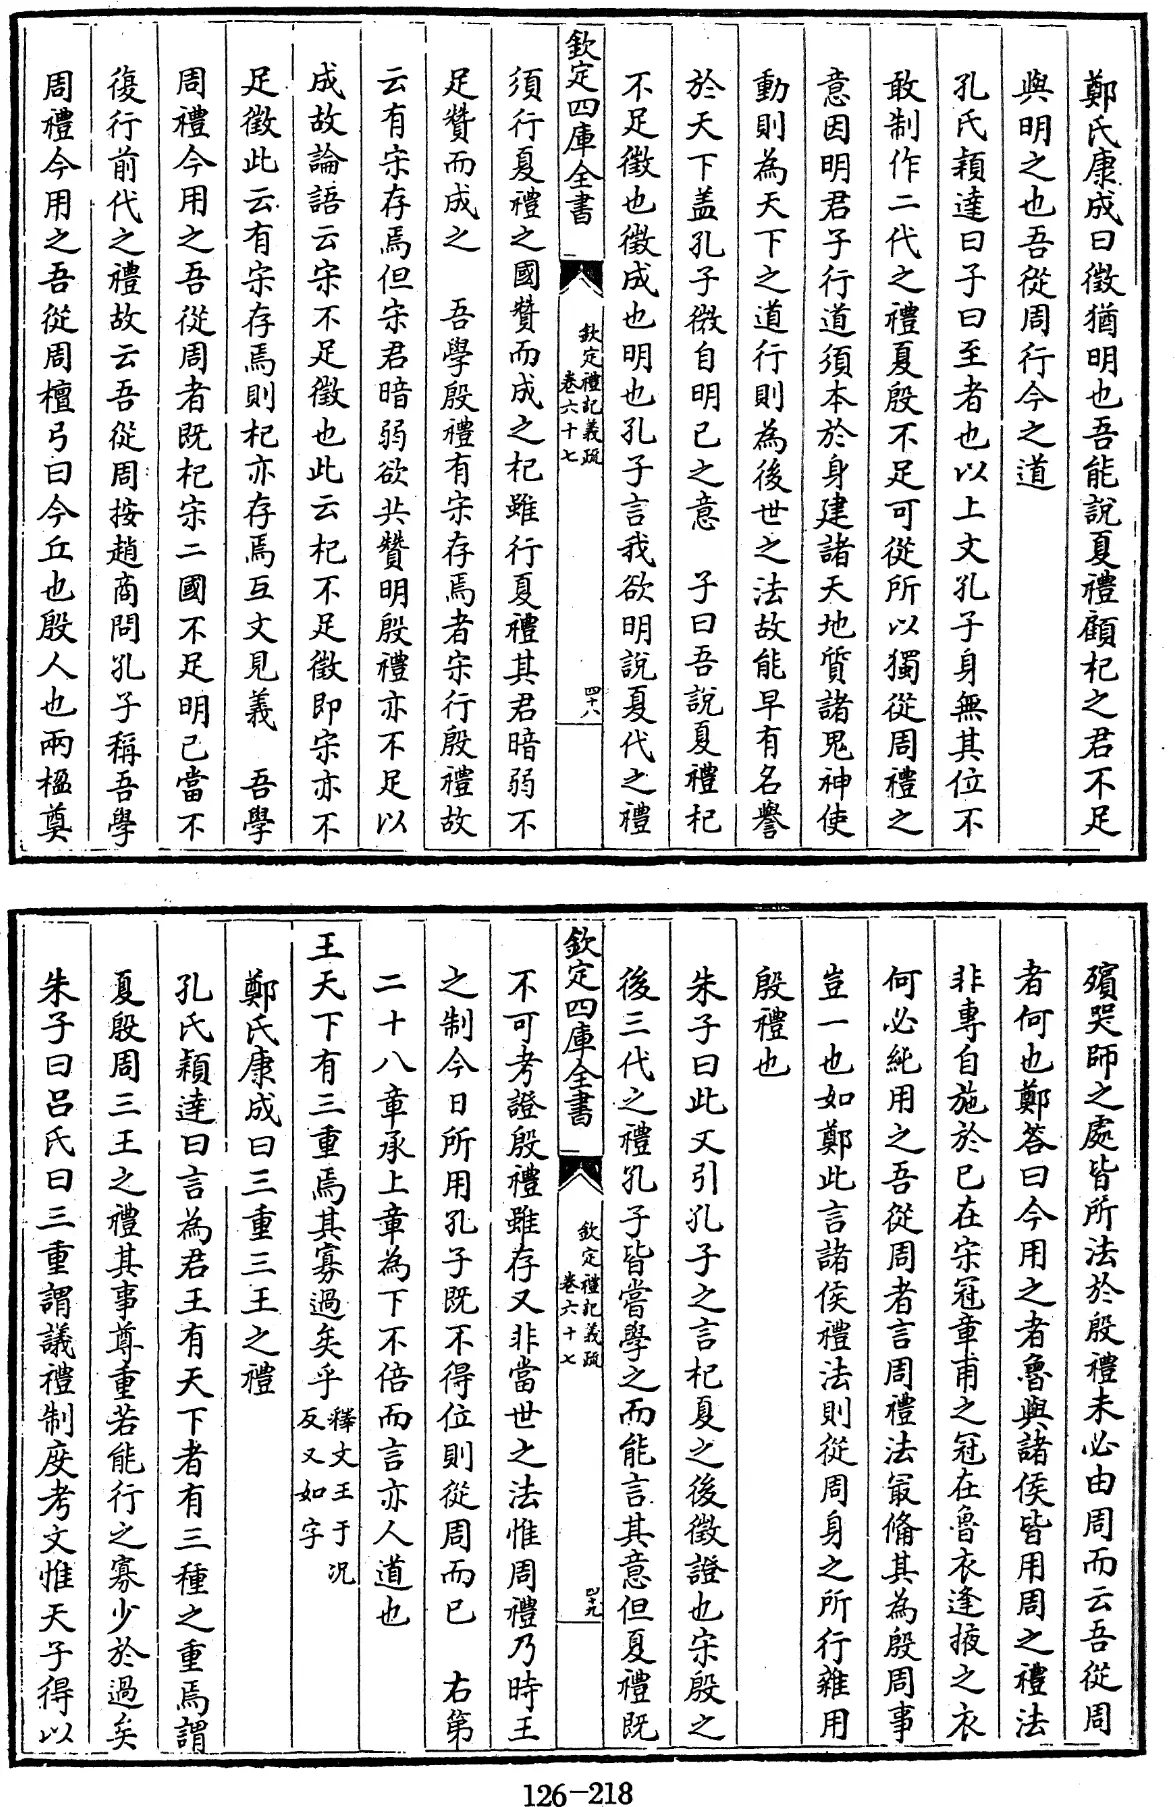 鄭氏康成曰徵猶明也吾能説夏禮顧杞之君不足
與明之也吾從周行今之道
孔氏穎達曰子曰至者也以上文孔子身無其位不
敢制作二代之禮夏殷不足可從所以獨從周禮之
意因明君子行道須本於身建諸天地質諸鬼神使
動則為天下之道行則為後世之法故能早有名譽
於天下蓋孔子微自明已之意　子曰吾説夏禮杞
不足徵也徵成也明也孔子言我欲明説夏代之禮
欽定四庫全書
欽定禮記義疏
卷六十七
四十八
須行夏禮之國贊而成之杞雖行夏禮其君暗弱不
足贊而成之　吾學殷禮有宋存焉者宋行殷禮故
云有宋存焉但宋君暗弱欲共贊明殷禮亦不足以
成故論語云宋不足徵也此云杞不足徵即宋亦不
足徵此云有宋存焉則杞亦存焉互文見義　吾學
周禮今用之吾從周者既杞宋二國不足明已當不
復行前代之禮故云吾從周按趙商問孔子稱吾學
周禮今用之吾從周檀弓曰今丘也殷人也兩楹奠
殯哭師之處皆所法於殷禮未必由周而云吾從周
者何也鄭答曰今用之者魯與諸侯皆用周之禮法
非專自施於已在宋冠章甫之冠在魯衣逢掖之衣
何必純用之吾從周者言周禮法最備其為殷周事
豈一也如鄭此言諸侯禮法則從周身之所行雜用
殷禮也
朱子曰此又引孔子之言杞夏之後徵證也宋殷之
後三代之禮孔子皆嘗學之而能言其意但夏禮既
欽定四庫全書
欽定禮記義疏
卷六十七
四十九
不可考證殷禮雖存又非當世之法惟周禮乃時王
之制今日所用孔子既不得位則從周而已　右第
二十八章承上章為下不倍而言亦人道也
王天下有三重焉其寡過矣乎釋文王于况反又如字
鄭氏康成曰三重三王之禮
孔氏穎達曰言為君王有天下者有三種之重焉謂
夏殷周三王之禮其事尊重若能行之寡少於過矣
朱子曰呂氏曰三重謂議禮制度考文惟天子得以
126-218